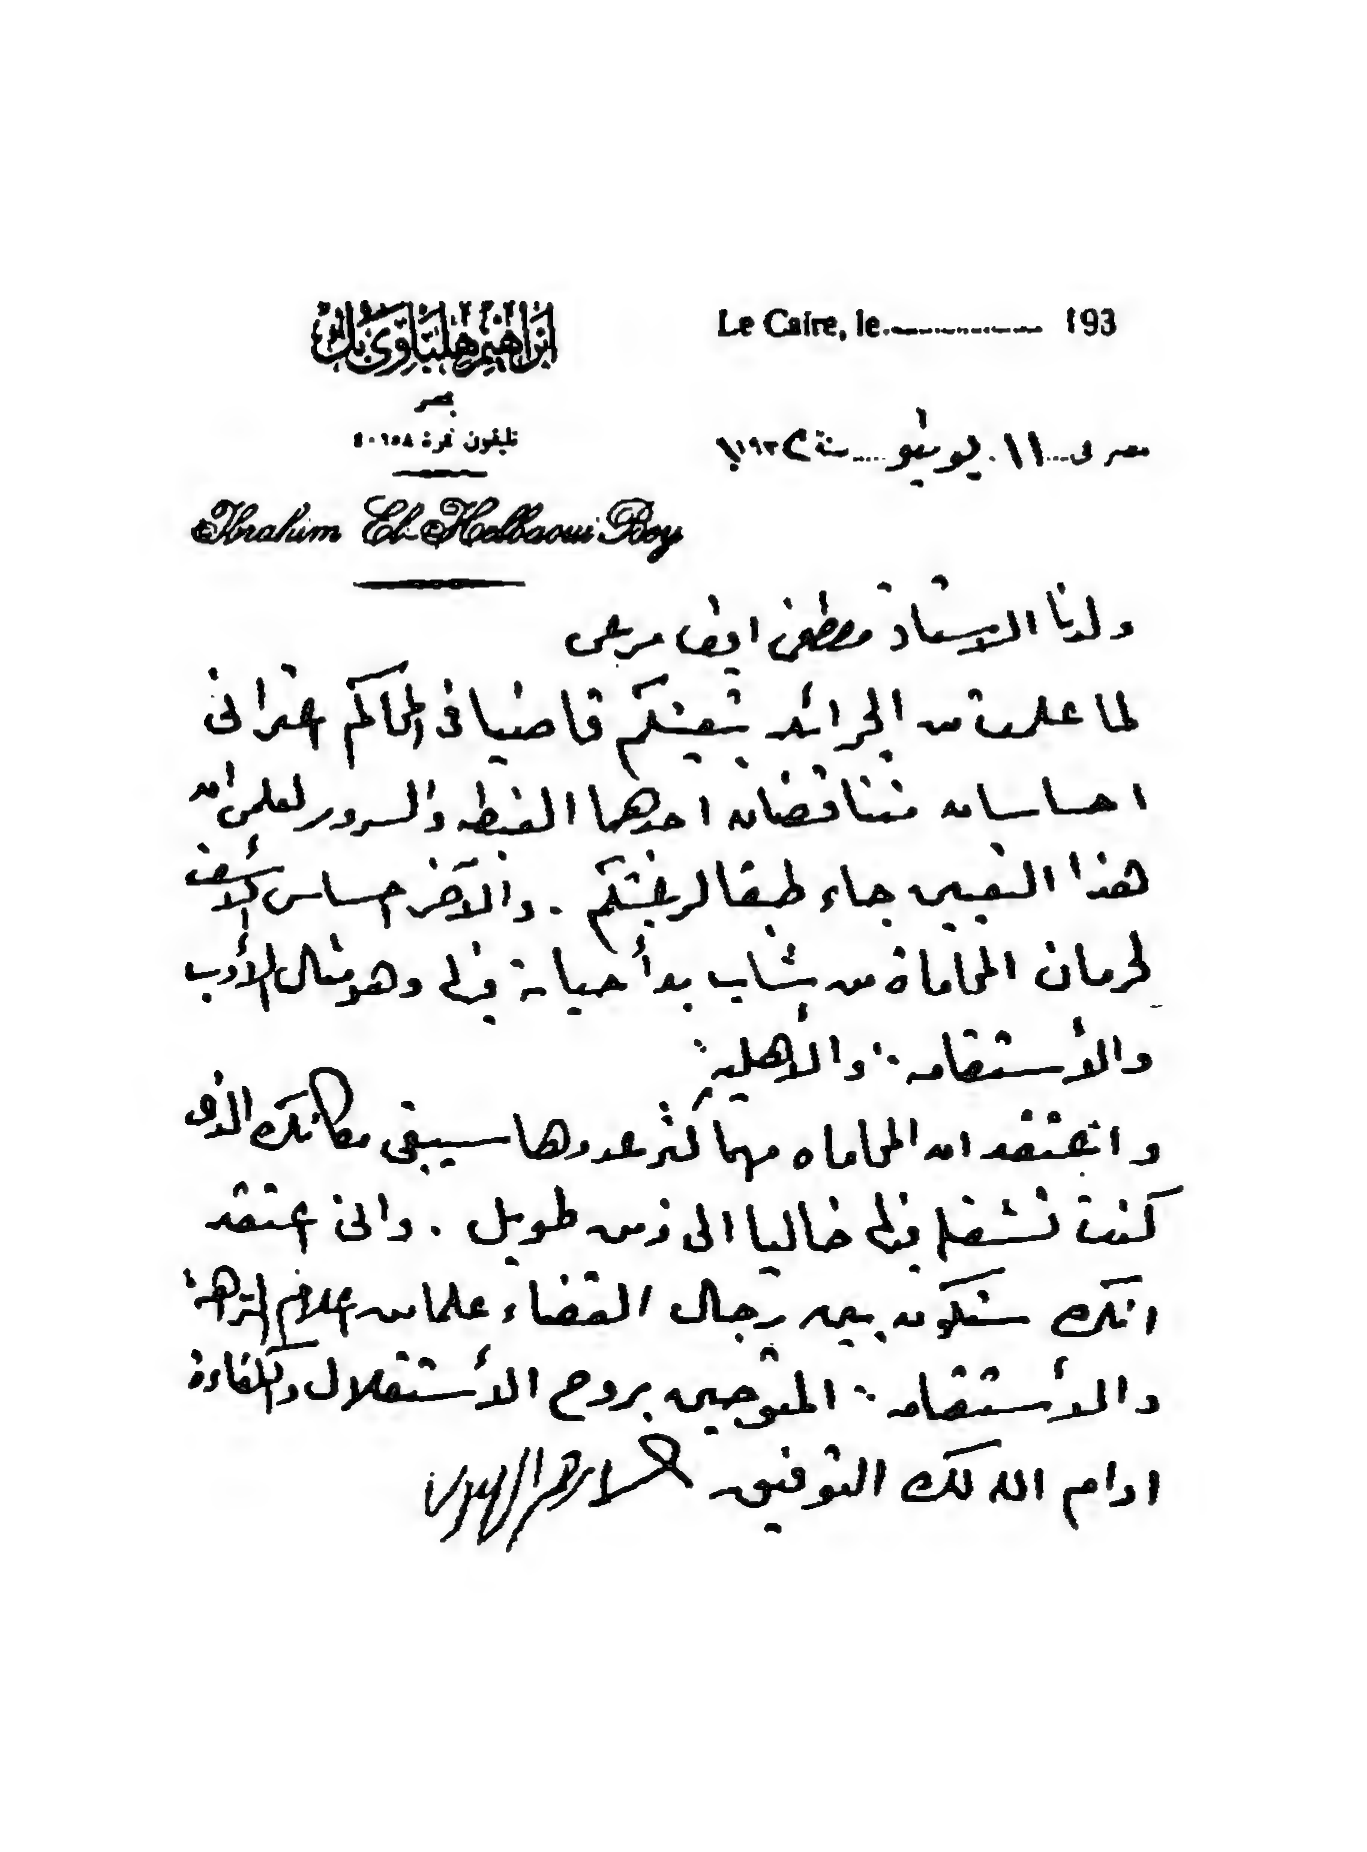 ابراهيم هلباوى بك
بمصر
تليفون نمرة ٤٠٦٥٨
Ibrahim El-Helbaoui Bey
Le Caire, le 193
مصر فى ١١ يونيو سنة ١٩٣٢
ولدنا الاستاذ مصطفى افندى مرعى
لما علمت من الجرائد بتعينكم قاضيا فى المحاكم اعترانى
احساسان متناقضان احدهما الغبطه والسرور لعلمى ان
هذا التعيين جاء طبقا لرغبتكم . والآخر احساس الأسف
لحرمان المحاماة من شاب بدأ حياته فيها وهو مثال الأدب
والأستقامة والأهلية
واعتقد ان المحاماه مهما كثر عددها سيبقى مكانك الذى
كنت تشغله فيها خاليا الى زمن طويل . وانى اعتقد
انك ستكون بين رجال القضاء علما من اعلام النزاهة
والأستقامة المتوجين بروح الأستقلال والكفاءة
ادام الله لك التوفيق ابراهيم الهلباوى